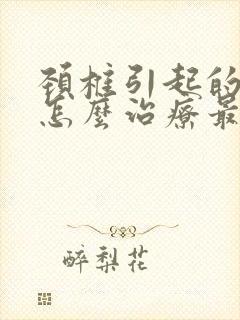 頚椎引起的
怎麼治療最
醉梨花